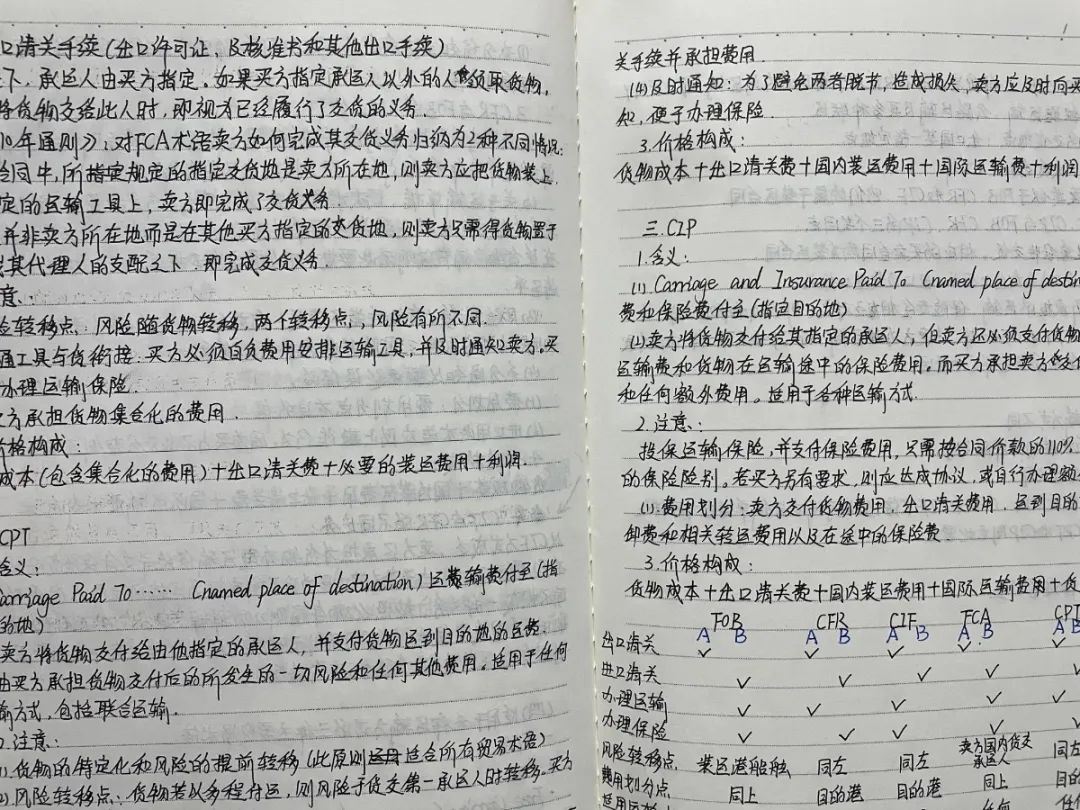 口清关手续(出口许可证、及核准书和其他出口手续)
下,承运人由买方指定。如果买方指定承运人以外的人领取货物,
将货物交给此人时,即视为已经履行了交货的义务.
10年通则》:对FCA术语卖方如何完成其交货义务归纳为2种不同情况:
合同中,所指定规定的指定交货地是卖方所在地,则卖方应把货物装上
定的运输工具上,卖方即完成了交货义务.
并非卖方所在地而是在其他买方指定的交货地,则卖方只需得货物置于
其代理人的支配之下.即完成交货义务.
意:
险转移点:风险随货物转移,两个转移点,风险有所不同.
通工具与货衔接:买方必须自负费用安排运输工具,并及时通知卖方。买
办理运输保险.
方承担货物集合化的费用.
价格构成:
成本(包含集合化的费用)+出口清关费+必要的装运费用+利润.
CPT
含义:
Carriage Paid To…… (named place of destination)运费输费付至(指
的地)
卖方将货物交付给由他指定的承运人,并支付货物运到目的地的运费.
由买方承担货物交付后的所发生的一切风险和任何其他费用。适用于任何
输方式,包括联合运输.
2.注意:
⑴.货物的特定化和风险的提前转移(此原则适合所有贸易术语)
⑵.风险转移点:货物若以多程付运,则风险于货交第一承运人时转移.买方
关手续并承担费用.
⑷及时通知:为了避免两者脱节,造成损失,卖方应及时向买
知,便于办理保险.
3.价格构成:
货物成本+出口清关费+国内装运费用+国际运输费+利润
三.CIP
1.含义:
⑴. Carriage and Insurance Paid To (named place of destin
费和保险费付至(指定目的地)
⑵卖方将货物交付给其指定的承运人,但卖方还必须支付货物
运输费和货物在运输途中的保险费用。而买方承担卖方交付
和任何额外费用。适用于各种运输方式.
2.注意:
投保运输保险,并支付保险费用,只需按合同价款的110%
的保险险别。若买方另有要求,则应达成协议,或自行办理额
⑴.费用划分:卖方支付货物费用,出口清关费用.运到目的
卸费和相关转运费用以及在途中的保险费
3.价格构成:
货物成本+出口清关费+国内装运费用+国际运输费用+货
FOB CFR CIF FCA CPT
A B A B A B A B A B
出口清关 ✓ ✓ ✓ ✓
进口清关 ✓ ✓ ✓ ✓
办理运输 ✓ ✓ ✓ ✓
办理保险 ✓ ✓ ✓ ✓
风险转移点. 装运港船舷 同左 同左 卖方国内货交承运人 同左
费用划分点 同上 目的港 目的港 同上 目的